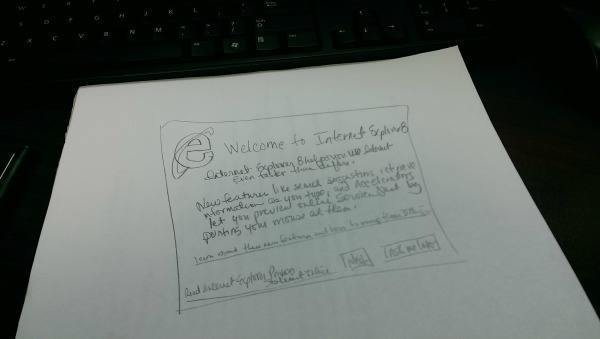 e Welcome to Internet Explorer 8
Internet Explorer 8 helps you use Internet
Even faster than before.
New features like search suggestions, retrieve
information as you type, and Accelerators
let you preview online services just by
pointing your mouse at them.
Learn about these new features and how to
Read Internet Explorer Privacy
Statement online
Next
Ask me later